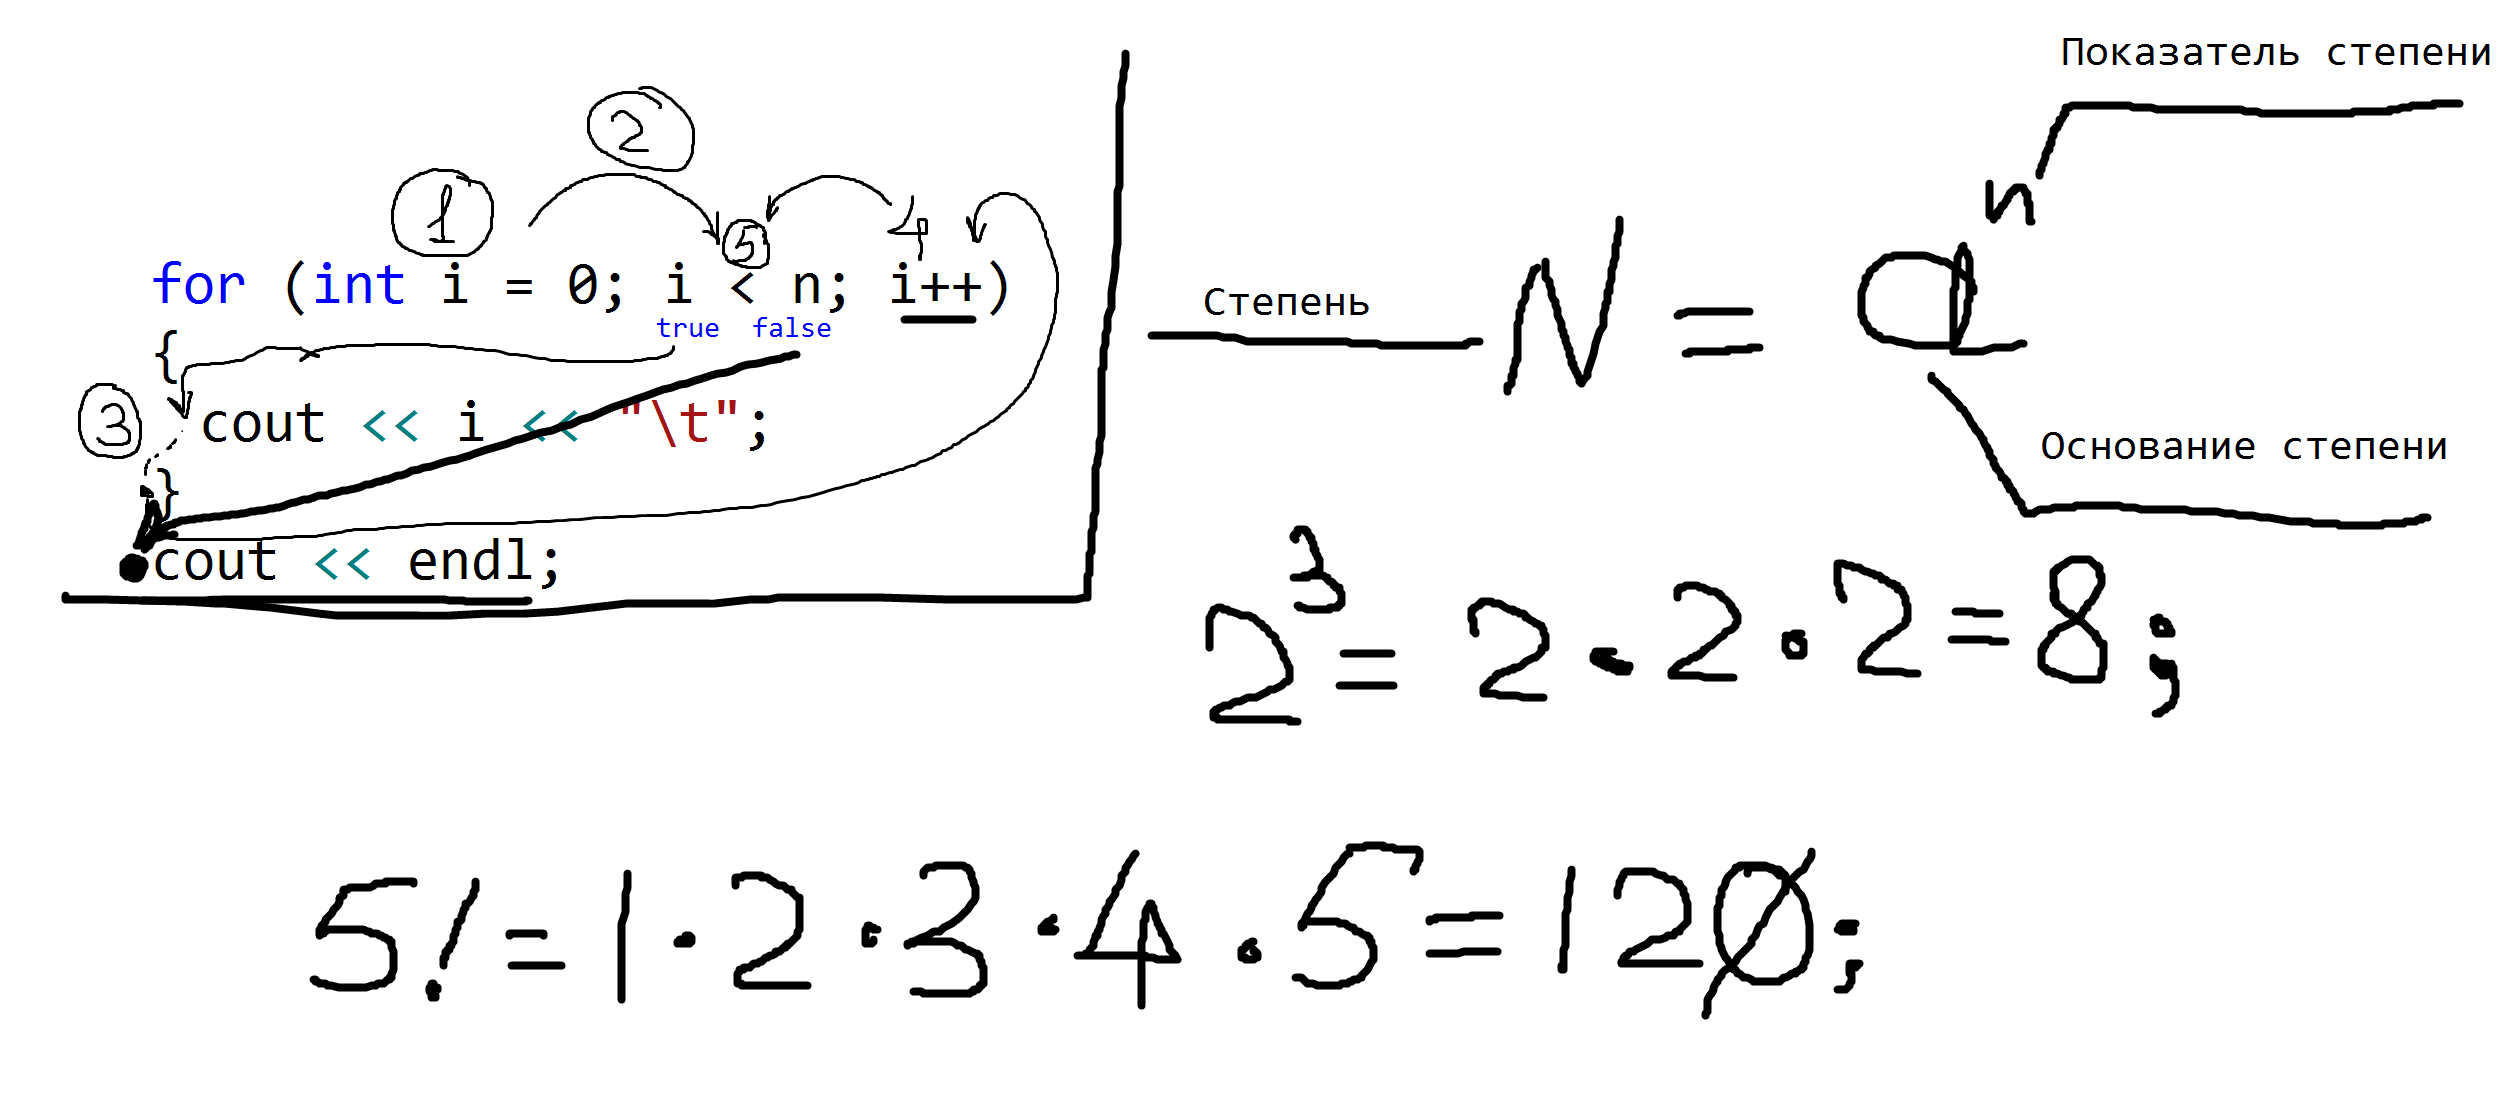 1
2
5
4
for (int i = 0; i < n; i++)
true false
{
3
cout << i << "\t";
}
cout << endl;
Показатель степени
Степень
N = aⁿ
Основание степени
2³ = 2 · 2 · 2 = 8;
5! = 1 · 2 · 3 · 4 · 5 = 120;